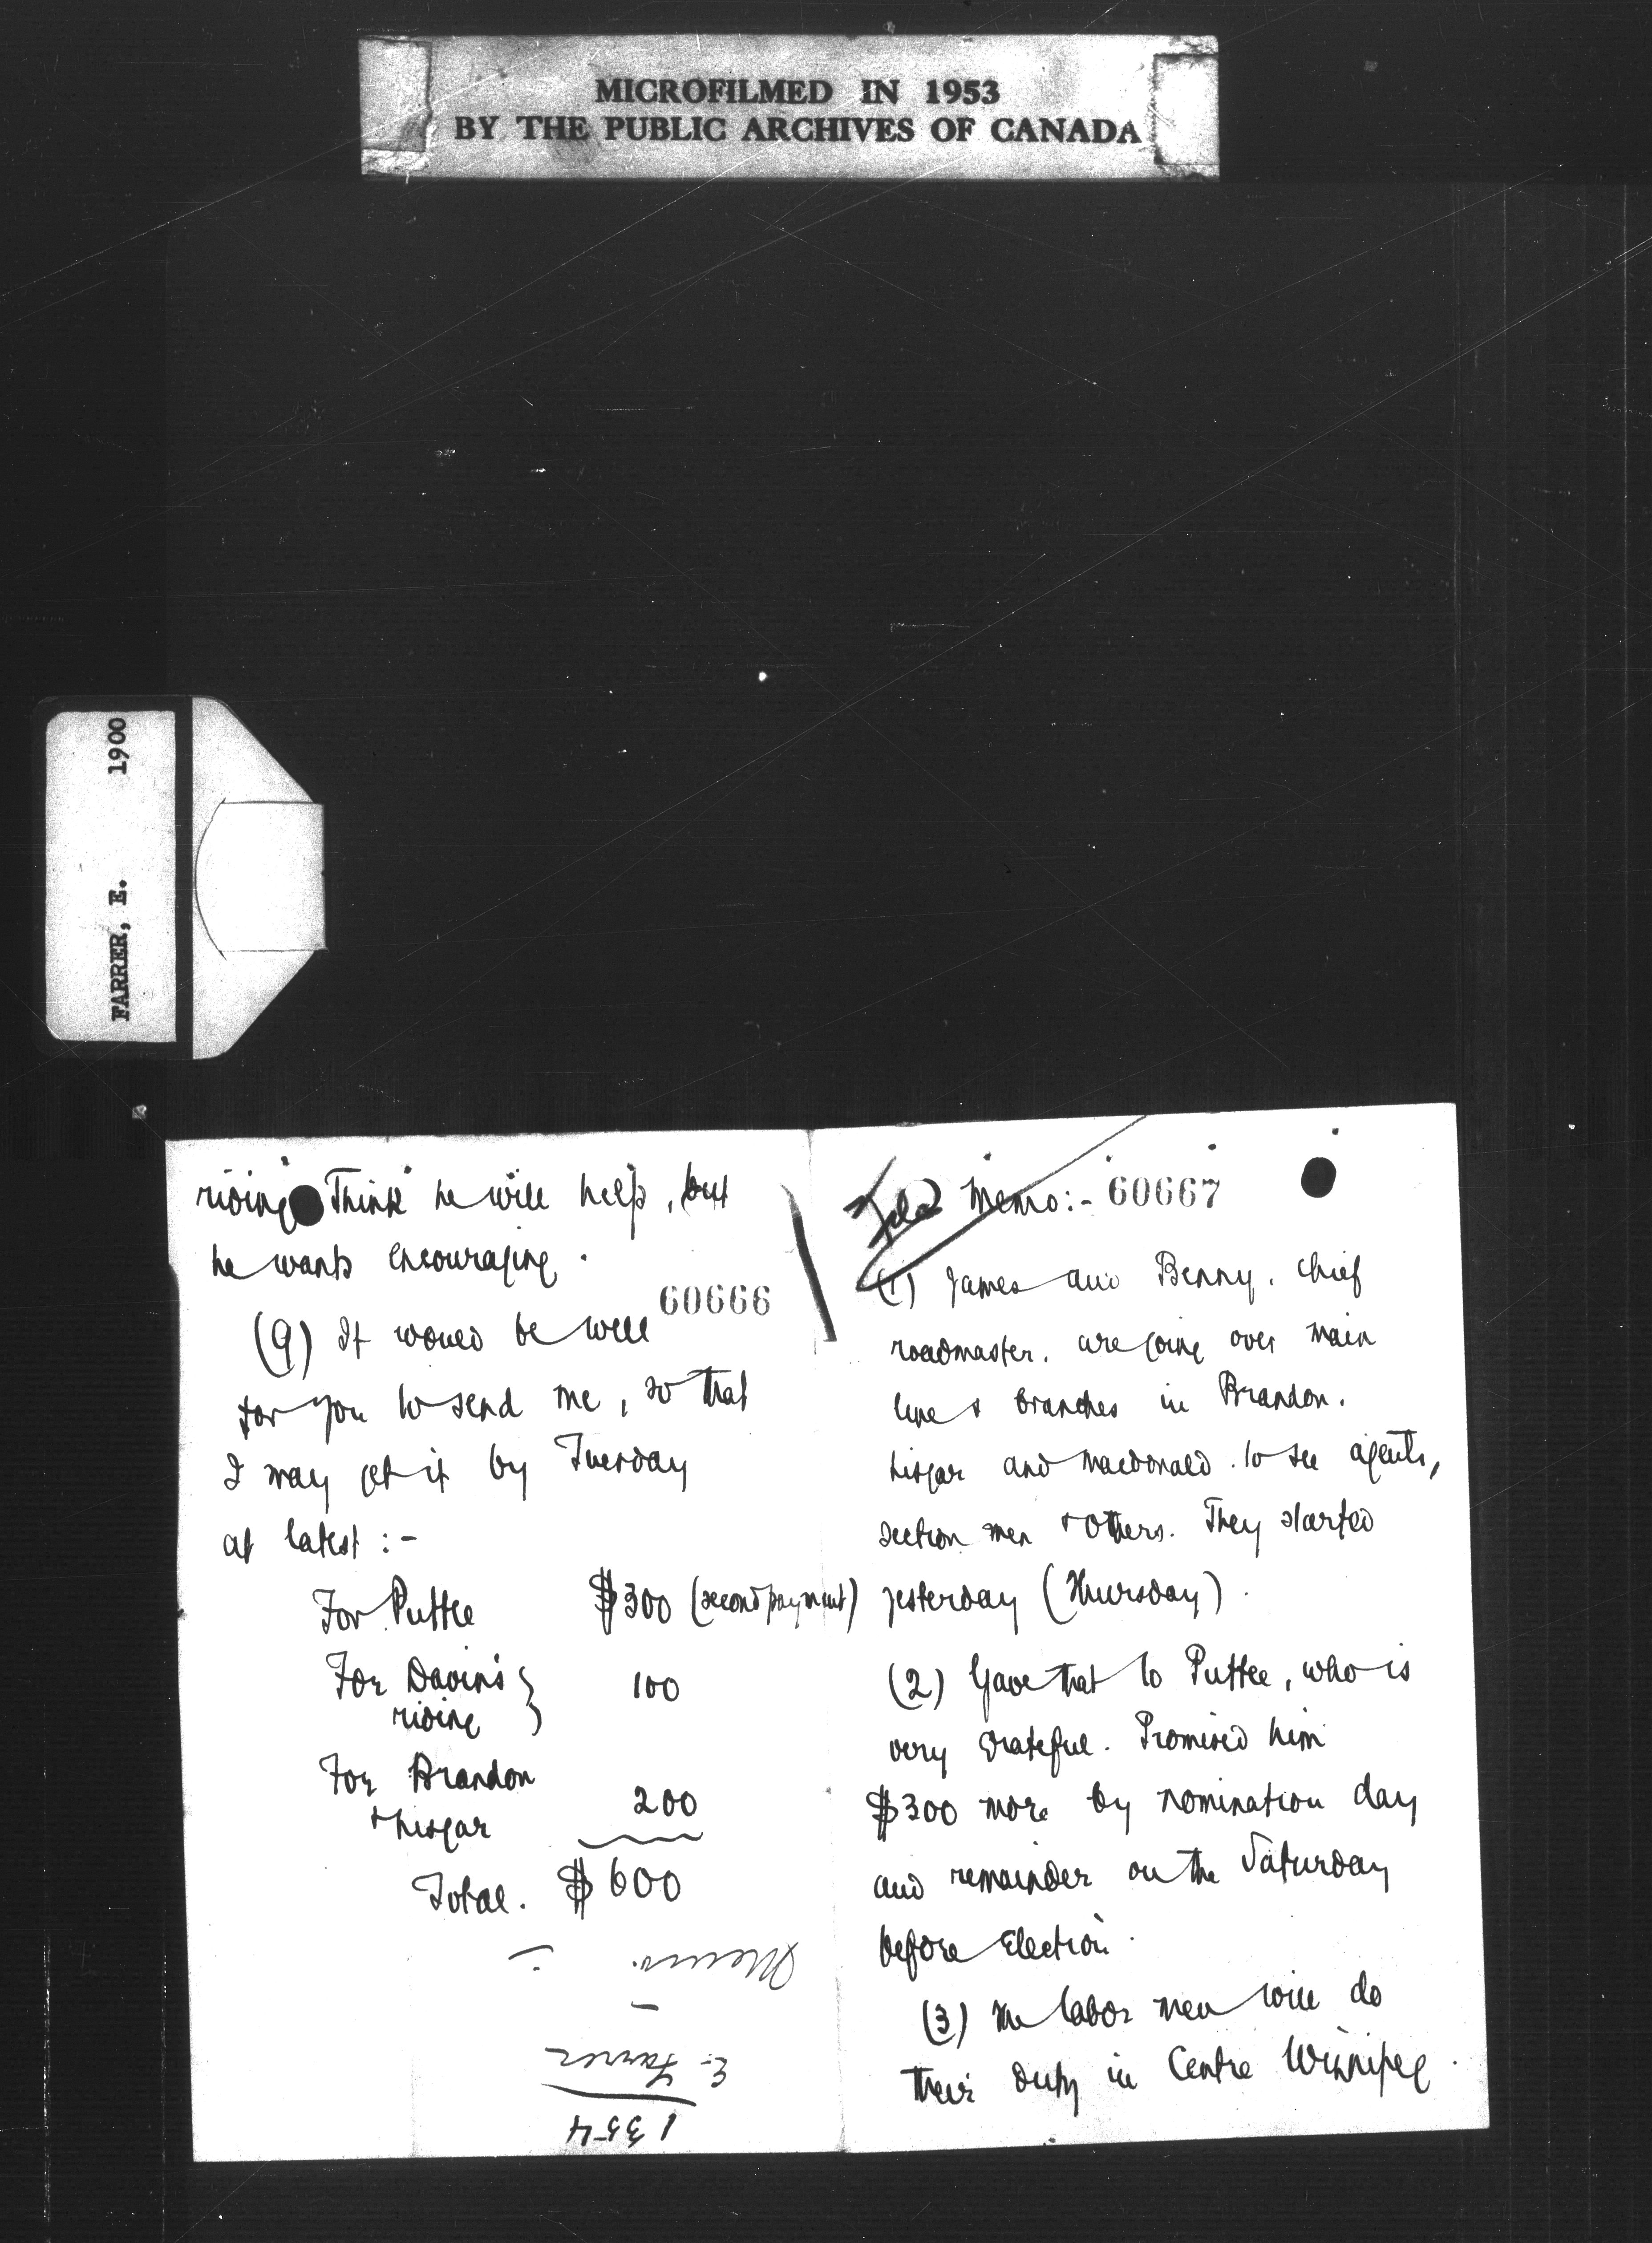 MICROFILMED IN 1953
BY THE PUBLIC ARCHIVES OF CANADA
FARRER, E. 1900
riding. Think he will help, but
he wants encouraging.
60666
(9) It would be well
for you to send me, so that
I may get it by Tuesday
at latest :-
For Puttee $300 (second payment)
For Davin's } 100
riding
For Brandon
& Lisgar 200
Total. $600
Memo. -
E. Farrer
1354
Memo :- 60667
(1) James and Benny, chief
roadmaster, are going over main
line & branches in Brandon,
Lisgar and Macdonald to see agents,
section men & others. They started
yesterday (Thursday).
(2) Gave that to Puttee, who is
very grateful. Promised him
$300 more by nomination day
and remainder on the Saturday
before Election.
(3) The labor men will do
their duty in Centre Winnipeg.